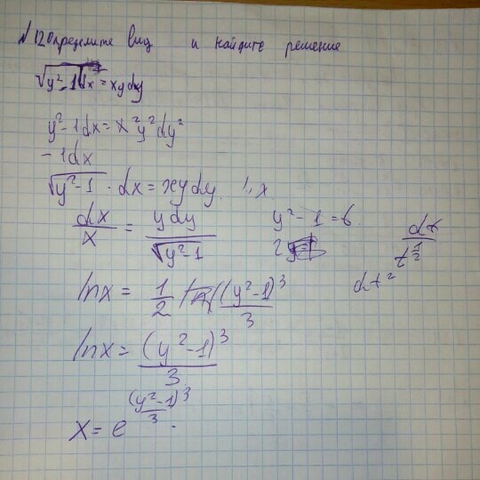 №12 Определите вид и найдите решение
√y²-1 dx = xydy
y²-1dx = x²y²dy²
-1dx
√y²-1 · dx = xydy
dx/x = ydy/√y²-1
y²-1 = t
dt/t^½
dt²
lnx = 1/2 (y²-1)³/3
lnx = (y²-1)³/3
x = e^(y²-1)³/3.